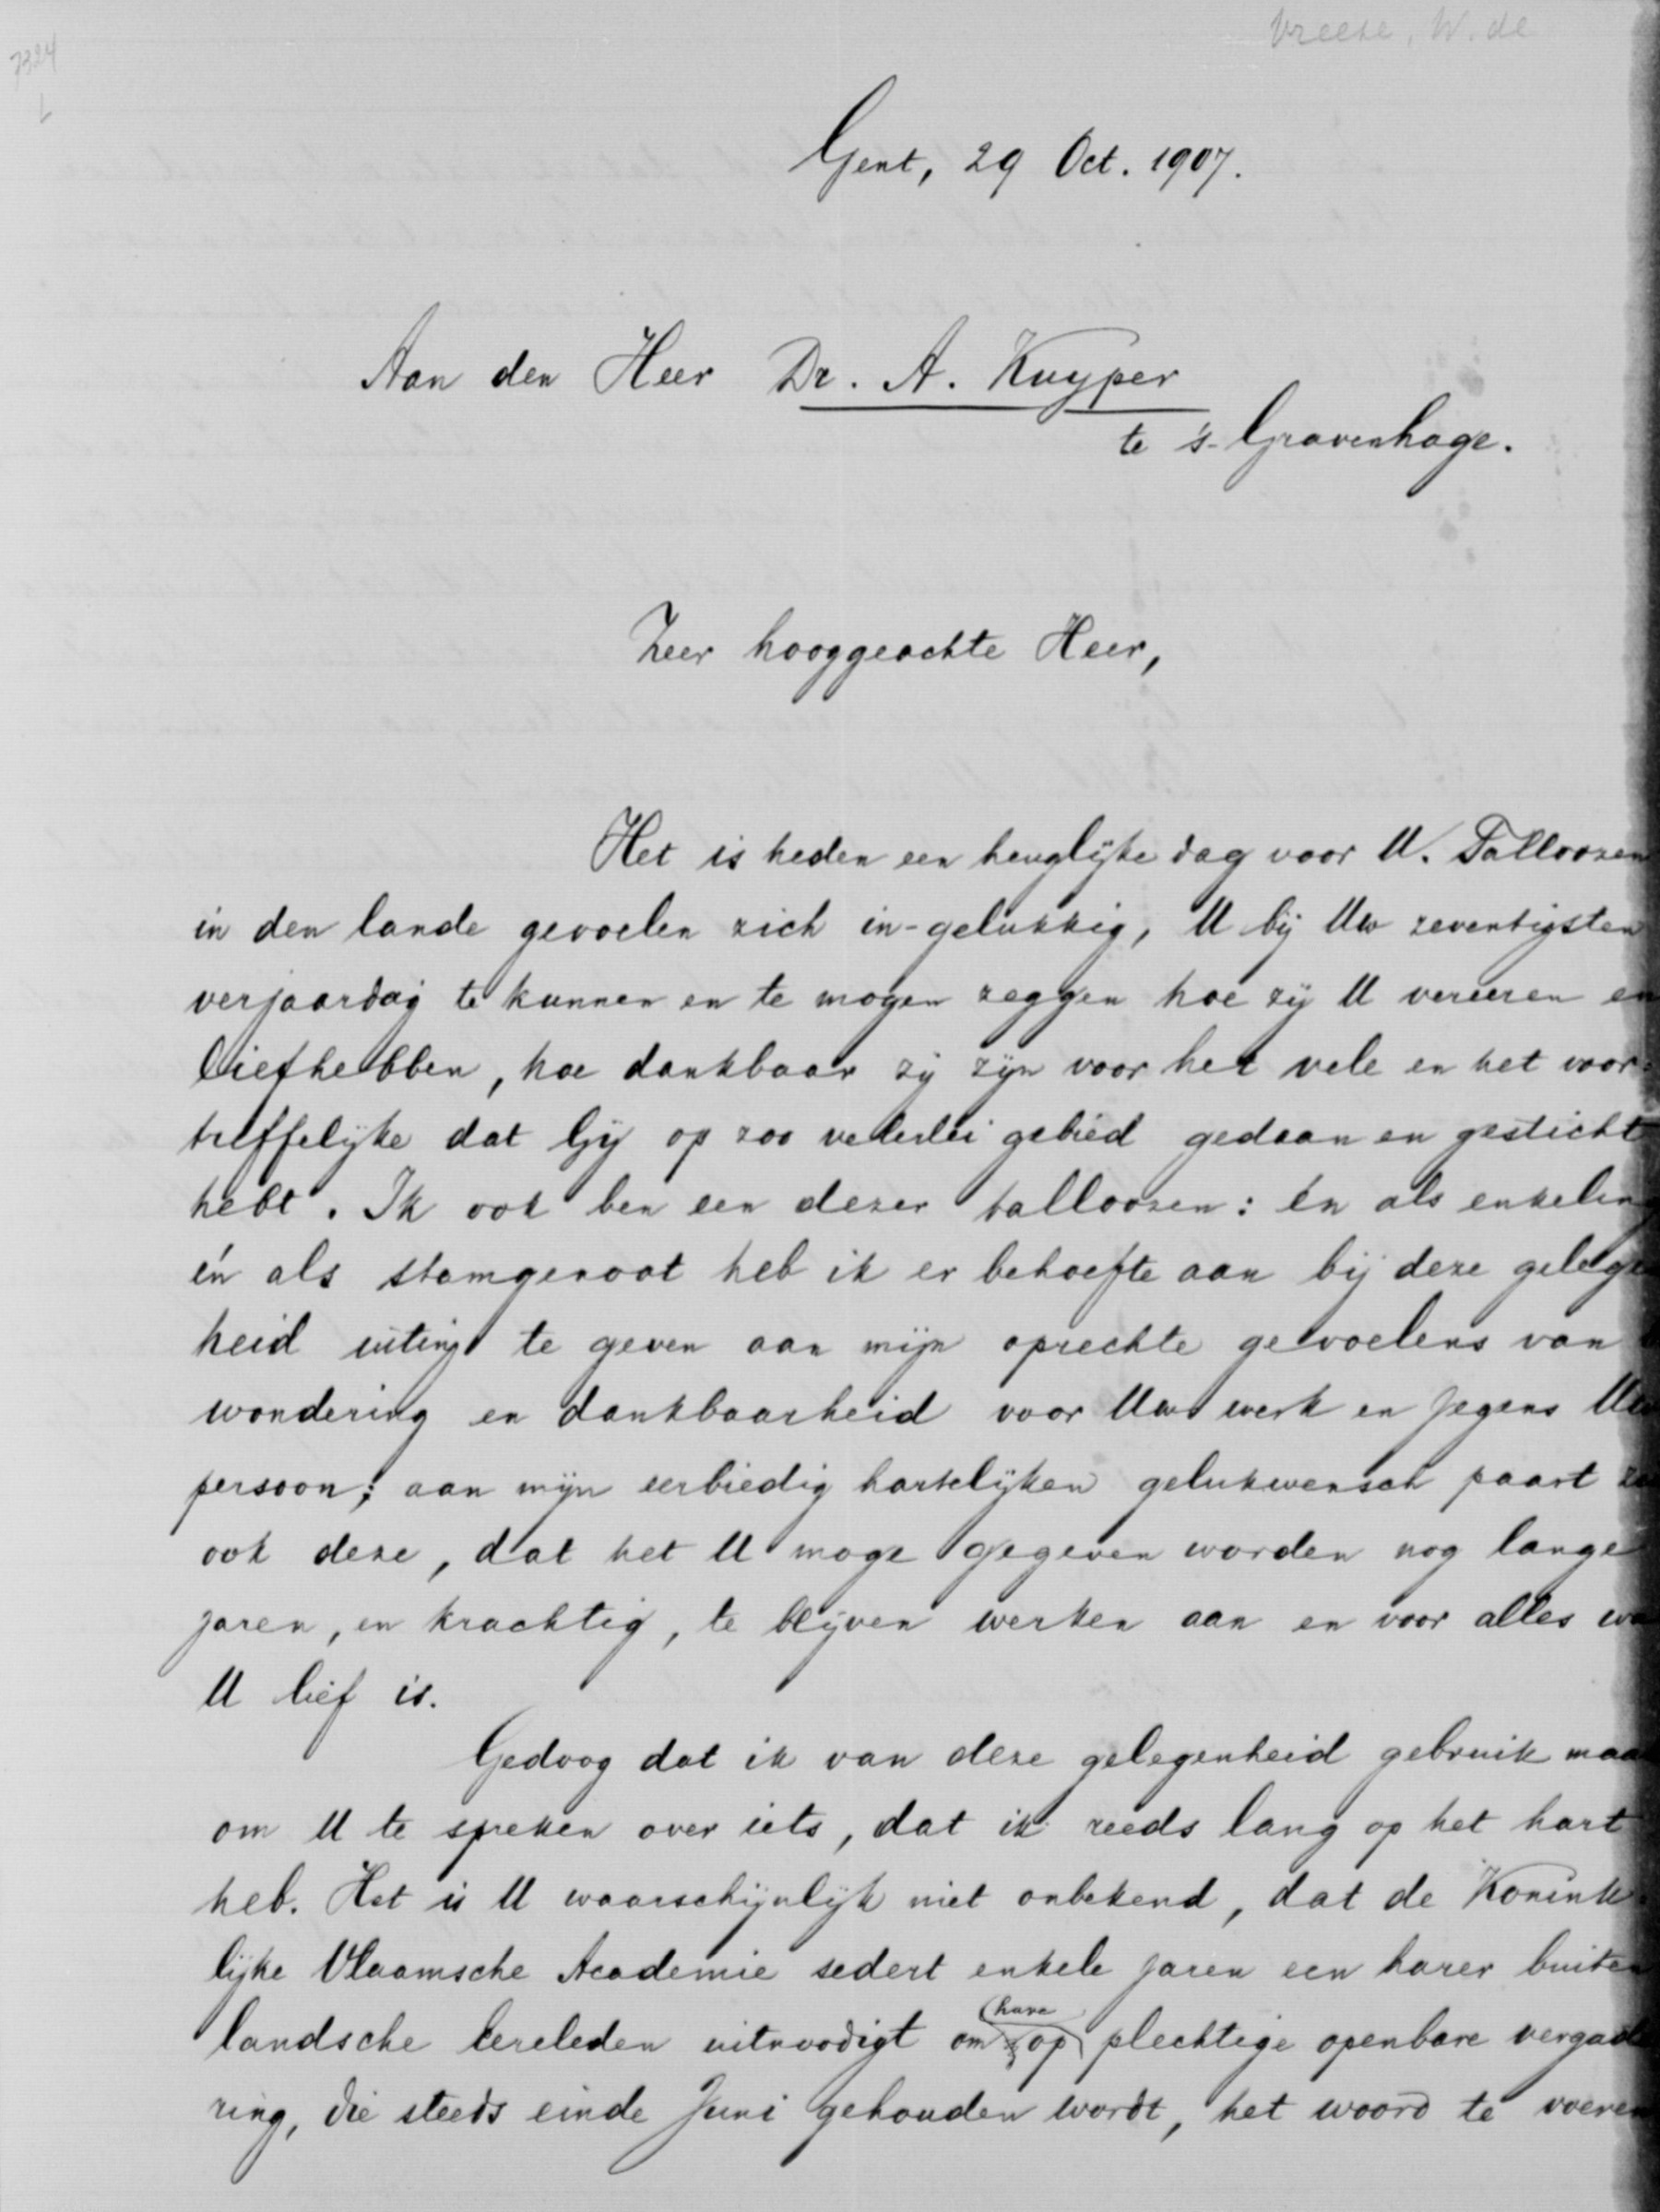 Vreese, W. de
7324
Gent, 29 Oct. 1907.
Aan den Heer Dr. A. Kuyper
te 's-Gravenhage.
Zeer hooggeachte Heer,
Het is heden een heuglijke dag voor U. Talloozen
in den lande gevoelen zich in-gelukkig, U bij Uw zeventigsten
verjaardag te kunnen en te mogen zeggen hoe zij U vereeren en
liefhebben, hoe dankbaar zij zijn voor het vele en het voor-
treffelijke dat Gij op zoo velerlei gebied gedaan en gesticht
hebt. Ik ook ben een dezer talloozen: én als enkeling
én als stamgenoot heb ik er behoefte aan bij deze gelege
heid uiting te geven aan mijn oprechte gevoelens van
wondering en dankbaarheid voor Uw werk en jegens Uw
persoon; aan mijn eerbiedig hartelijken gelukwensch paart
ook deze, dat het U moge gegeven worden nog lange
jaren, en krachtig, te blijven werken aan en voor alles wa
U lief is.
Gedoog dat ik van deze gelegenheid gebruik maa
om U te spreken over iets, dat ik reeds lang op het hart
heb. Het is U waarschijnlijk niet onbekend, dat de Konink-
lijke Vlaamsche Academie sedert enkele jaren een harer buiten
landsche Eereleden uitnoodigt om op hare plechtige openbare vergade
ring, die steeds einde Juni gehouden wordt, het woord te voeren